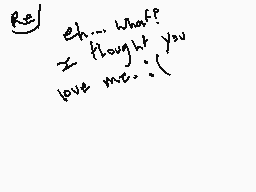 Re
eh... what?
I thought you
love me. :(